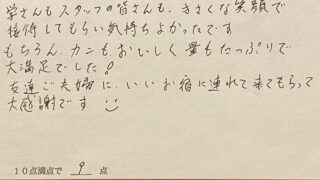 学さんもスタッフの皆さんも、きさくな笑顔で
接待してもらい気持ちよかったです
もちろん、カニもおいしく量もたっぷりで
大満足でした!
友達ご夫婦に、いいお宿に連れて来てもらって
大感謝です
10点満点で 9 点